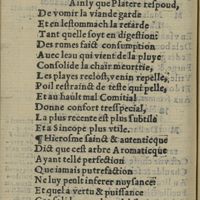 Ainsy que Platere respond,
De vomir la viande garde
Et en lestommach la retarde
Tant quelle soyt en digestion:
Des romes faict consumption
Auec leau qui vient de la pluye
Consolide la chair meurtrie,
Les playes reclost, venin repelle,
Poil restrainct de teste qui pelle,
Et au hault mal Comitial
Donne confort tresspecial,
La plus recente est plus subtile
Et a Sincope plus vtile.
¶ Hierosme sainct & autenticque
Dict que cest arbre Aromaticque
Ayant telle perfection
Que iamais putrefaction
Ne luy peult inferer nuysance:
Et que la vertu & puissance